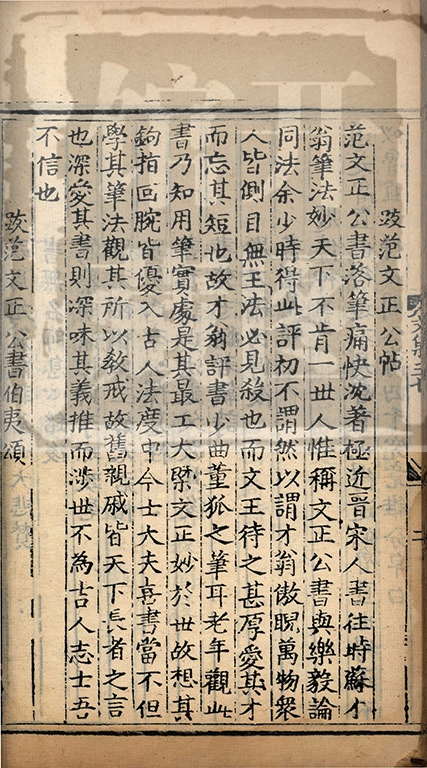 跋范文正公帖
范文正公書落筆痛快沈著極近晉宋人書往時蘇才
翁筆法妙天下不肯一世人惟稱文正公書與樂毅論
同法余少時得此評初不謂然以謂才翁傲睨萬物衆
人皆側目無王法必見殺也而文王待之甚厚愛其才
而忘其短也故才翁評書少曲董狐之筆耳老年觀此
書乃知用筆實處是其最工大槩文正妙於世故想其
鉤指回腕皆優入古人法度中今士大夫喜書當不但
學其筆法觀其所以教戒故舊親戚皆天下長者之言
也深愛其書則深味其義推而涉世不為古人志士吾
不信也
跋范文正公書伯夷頌